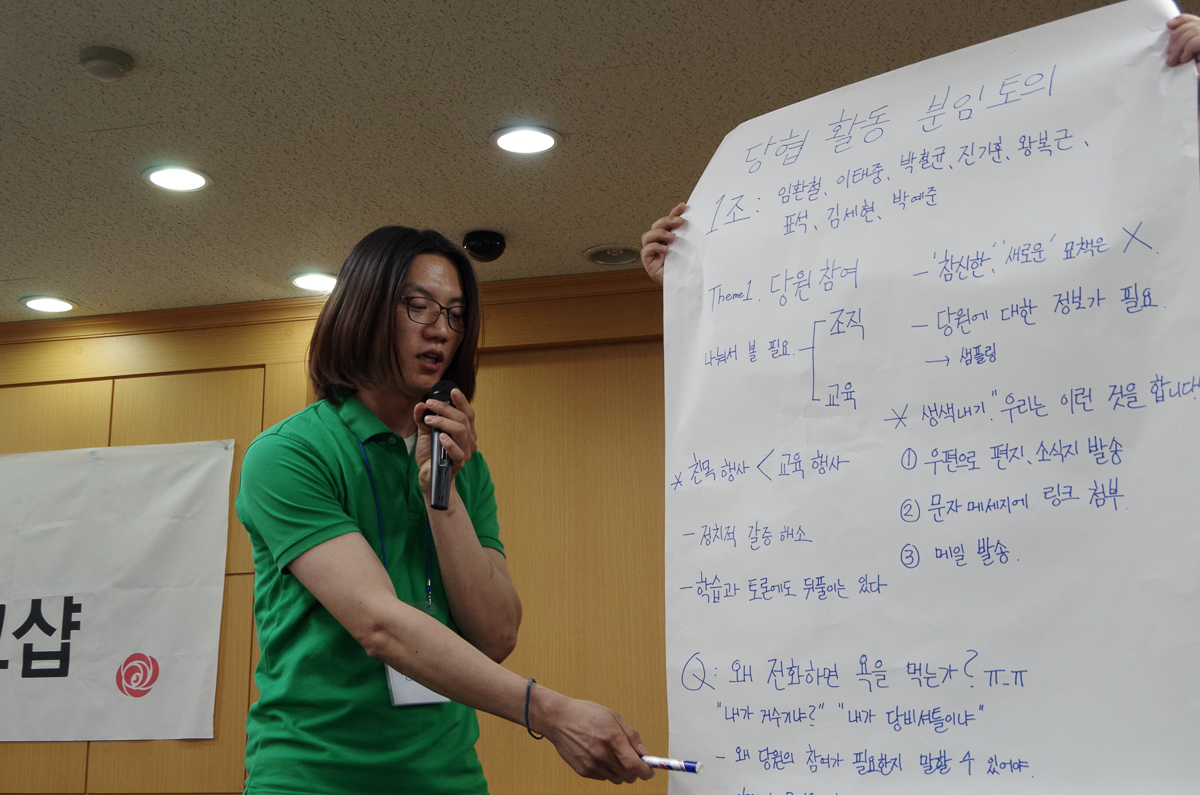 당협 활동 분임토의
1조 : 임환철, 이태중, 박철균, 진기훈, 왕복근,
표석, 김세현, 박예준
Theme1. 당원 참여
나눠서 볼 필요.
조직
교육
* 친목 행사 < 교육 행사
- 정치적 갈증 해소
- 학습과 토론에도 뒤풀이는 있다
- '참신한', '새로운' 묘책은 X.
- 당원에 대한 정보가 필요.
→ 샘플링
* 생색내기. "우리는 이런 것을 합니다!
① 우편으로 편지, 소식지 발송
② 문자 메세지에 링크 첨부.
③ 메일 발송.
Q : 왜 전화하면 욕을 먹는가? ㅠ_ㅠ
"내가 거수기냐?" "내가 당비셔틀이냐"
- 왜 당원의 참여가 필요한지 말할 수 있어야.
샵